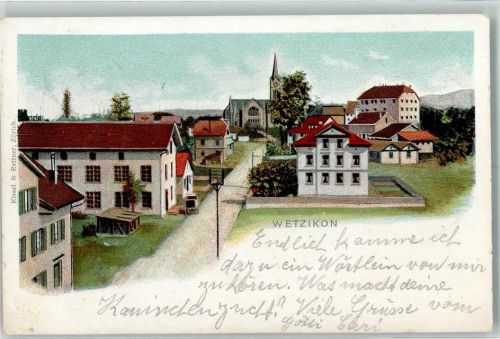 Kissel & Kettner, Zürich
WETZIKON
Endlich komme ich
dazu ein Wörtlein von mir
zu hören. Was macht deine
Kaninchenzucht? Viele Grüsse vom
Götti